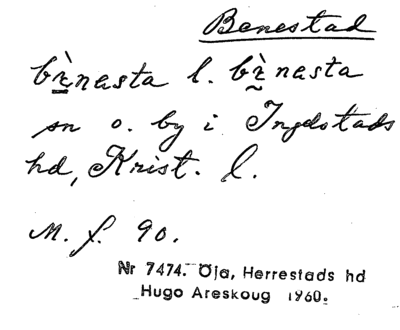 Benestad
bænasta l. bænasta
sn o. by i Ingelstads
hd, Krist. l.
M. f. 90.
Nr 7474. Öja, Herrestads hd
Hugo Areskoug 1960.